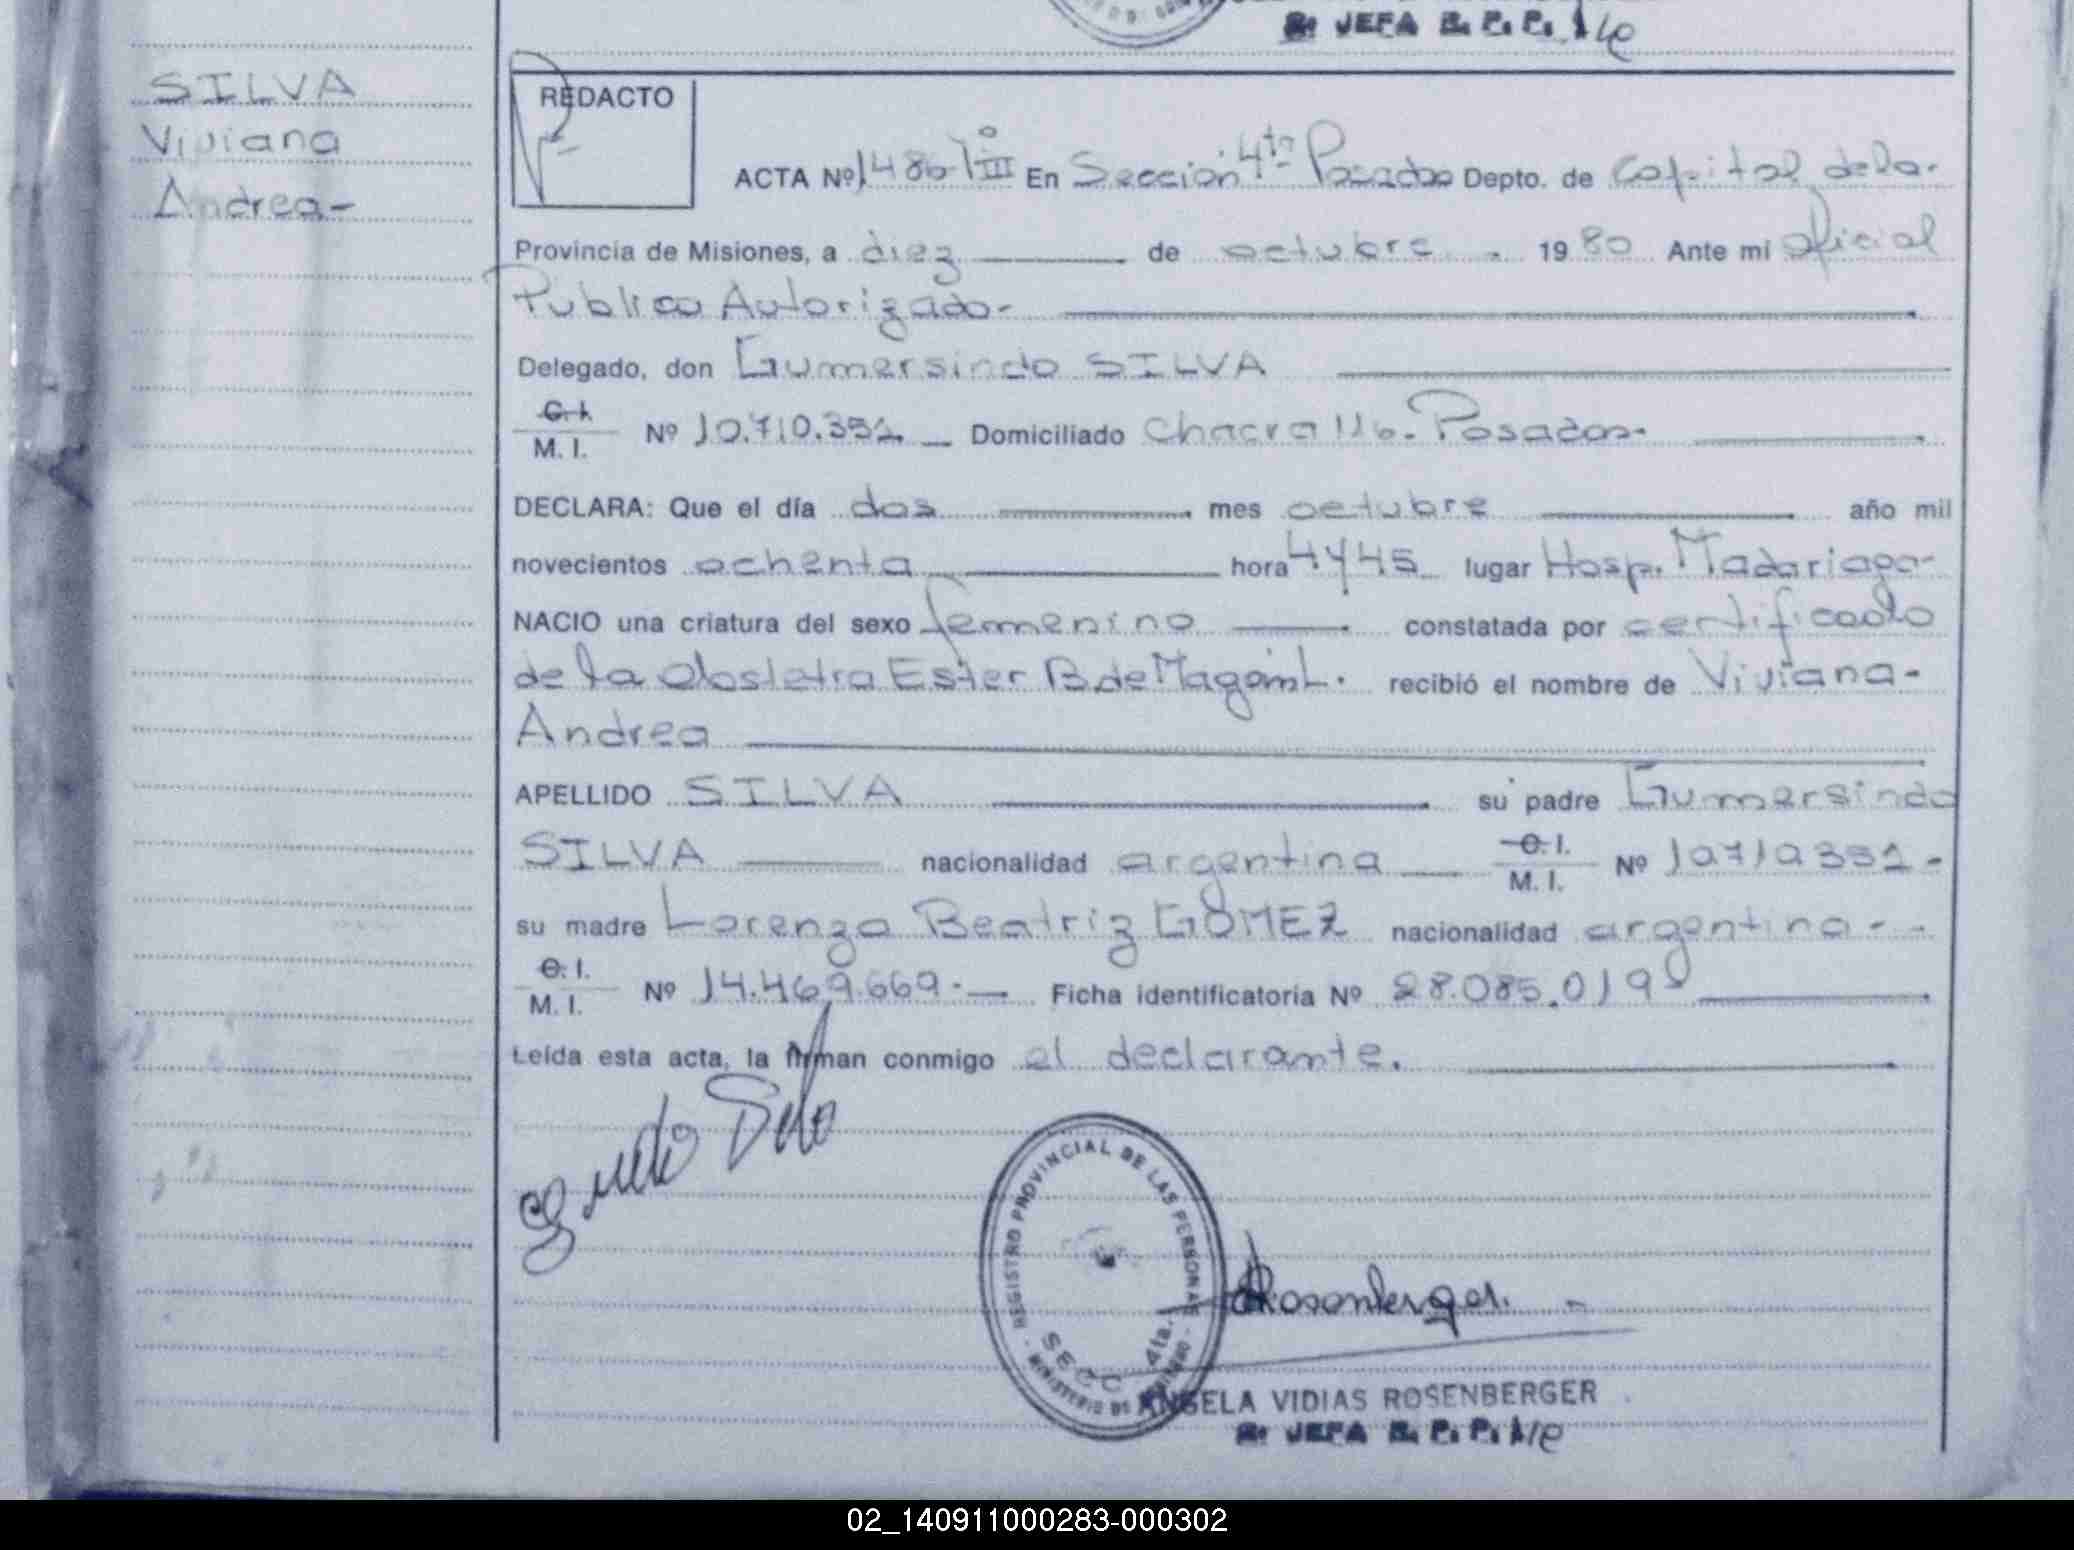 2º JEFA R. P. P. A/C
SILVA
Viviana
Andrea-
REDACTO
ACTA Nº 1486 Tº III En Sección 4ta Posadas Depto. de Capital de la-
Provincia de Misiones, a diez de octubre 1980 Ante mi Oficial
Publico Autorizado-
Delegado, don Gumersindo SILVA
C. I. M. I. Nº 10.710.332 Domiciliado Chacra 116- Posadas-
DECLARA: Que el día dos mes octubre año mil
novecientos ochenta hora 4y45 lugar Hosp. Madariaga-
NACIO una criatura del sexo femenino constatada por certificado
de la Obstetra Ester B. de recibió el nombre de Viviana-
Andrea
APELLIDO SILVA su padre Gumersindo
SILVA nacionalidad argentina C. I. M. I. Nº 10710332-
su madre Lorenza Beatriz GOMEZ nacionalidad argentina--
C. I. M. I. Nº 14.469.669.- Ficha identificatoria Nº 28.085.019
Leída esta acta, la firman conmigo el declarante.
REGISTRO PROVINCIAL DE LAS PERSONAS
SECC 4ta.
MINISTERIO DE GOBIERNO
Rosenberger
ANGELA VIDIAS ROSENBERGER
2º JEFA R. P. P. A/C
02_140911000283-000302